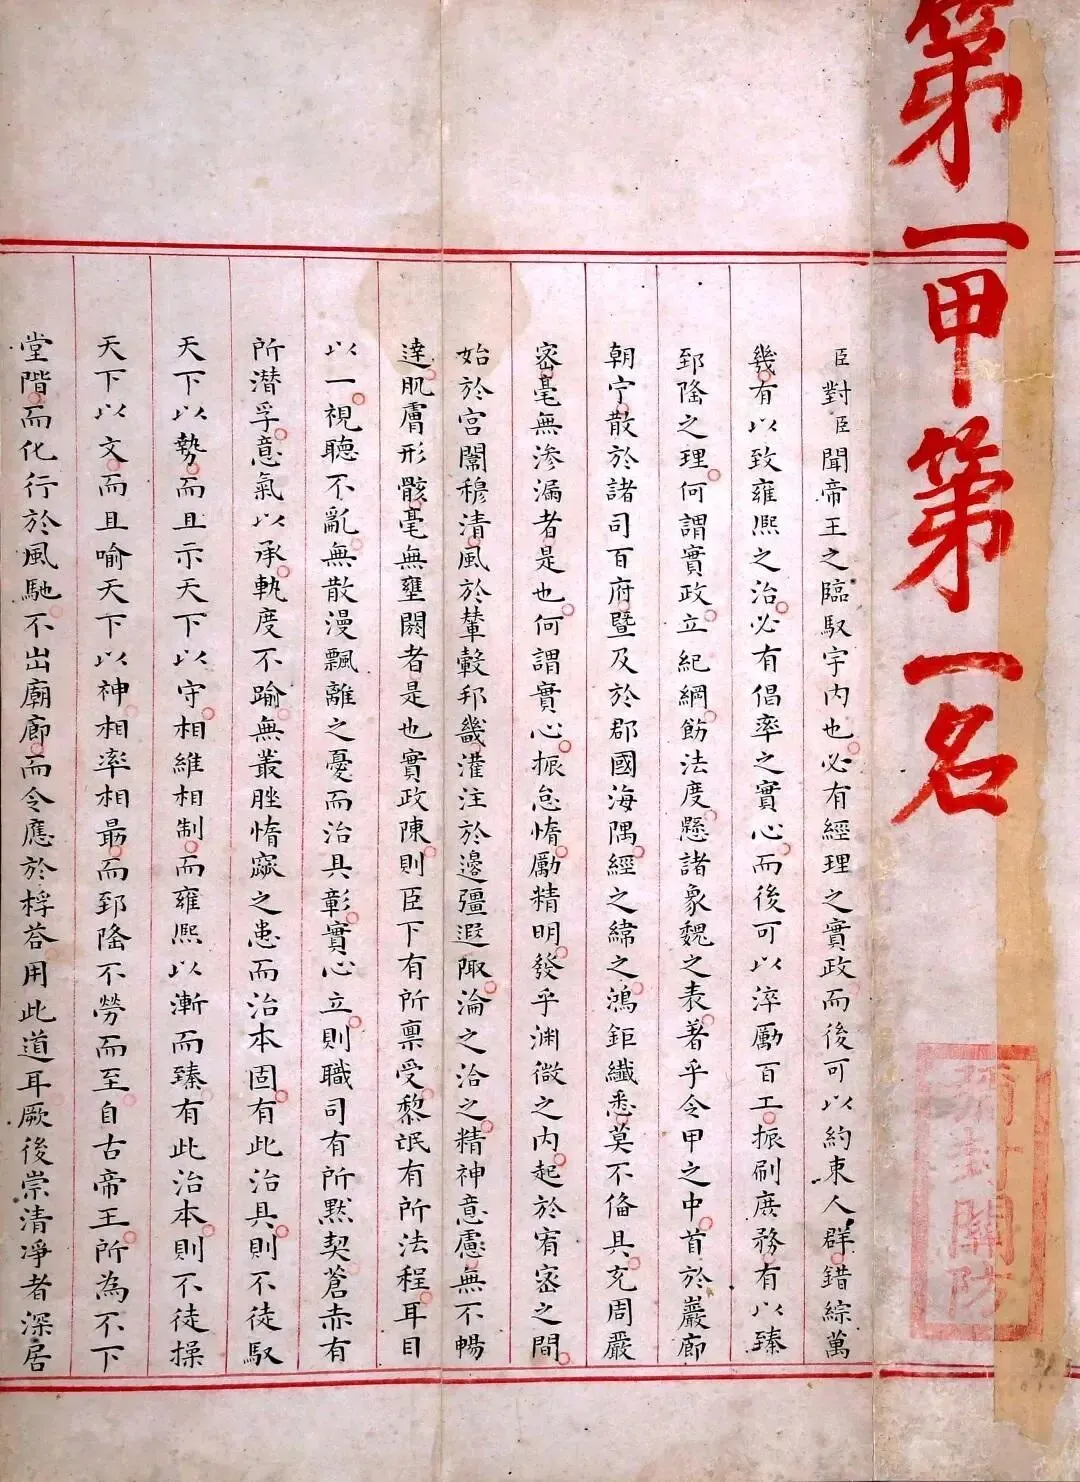 第一甲第一名
臣對臣聞帝王之臨馭宇内也必有經理之實政而後可以約束人群錯綜萬
幾有以致雍熙之治必有倡率之實心而後可以淬勵百工振刷庶務有以臻
郅隆之理何謂實政立紀綱飭法度懸諸象魏之表著乎令甲之中首於巖廊
朝宁散於諸司百府暨及於郡國海隅經之緯之鴻鉅纖悉莫不俻具充周嚴
密毫無渗漏者是也何謂實心振怠惰勵精明發乎渊微之内起於宥密之間
始於宮闈穆清風於輦轂邦畿灌注於邊疆遐陬淪之洽之精神意慮無不暢
達肌膚形骸毫無壅閼者是也實政陳則臣下有所禀受黎氓有所法程耳目
以一視聽不亂無散漫飄離之憂而治具彰實心立則職司有所默契蒼赤有
所潜孚意氣以承軌度不踰無叢脞惰窳之患而治本固有此治具則不徒馭
天下以勢而且示天下以守相維相制而雍熙以漸而臻有此治本則不徒操
天下以文而且喻天下以神相率相朂而郅隆不勞而至自古帝王所為不下
堂階而化行於風馳不出廟廊而令應於桴荅用此道耳厥後崇清淨者深居
封關防